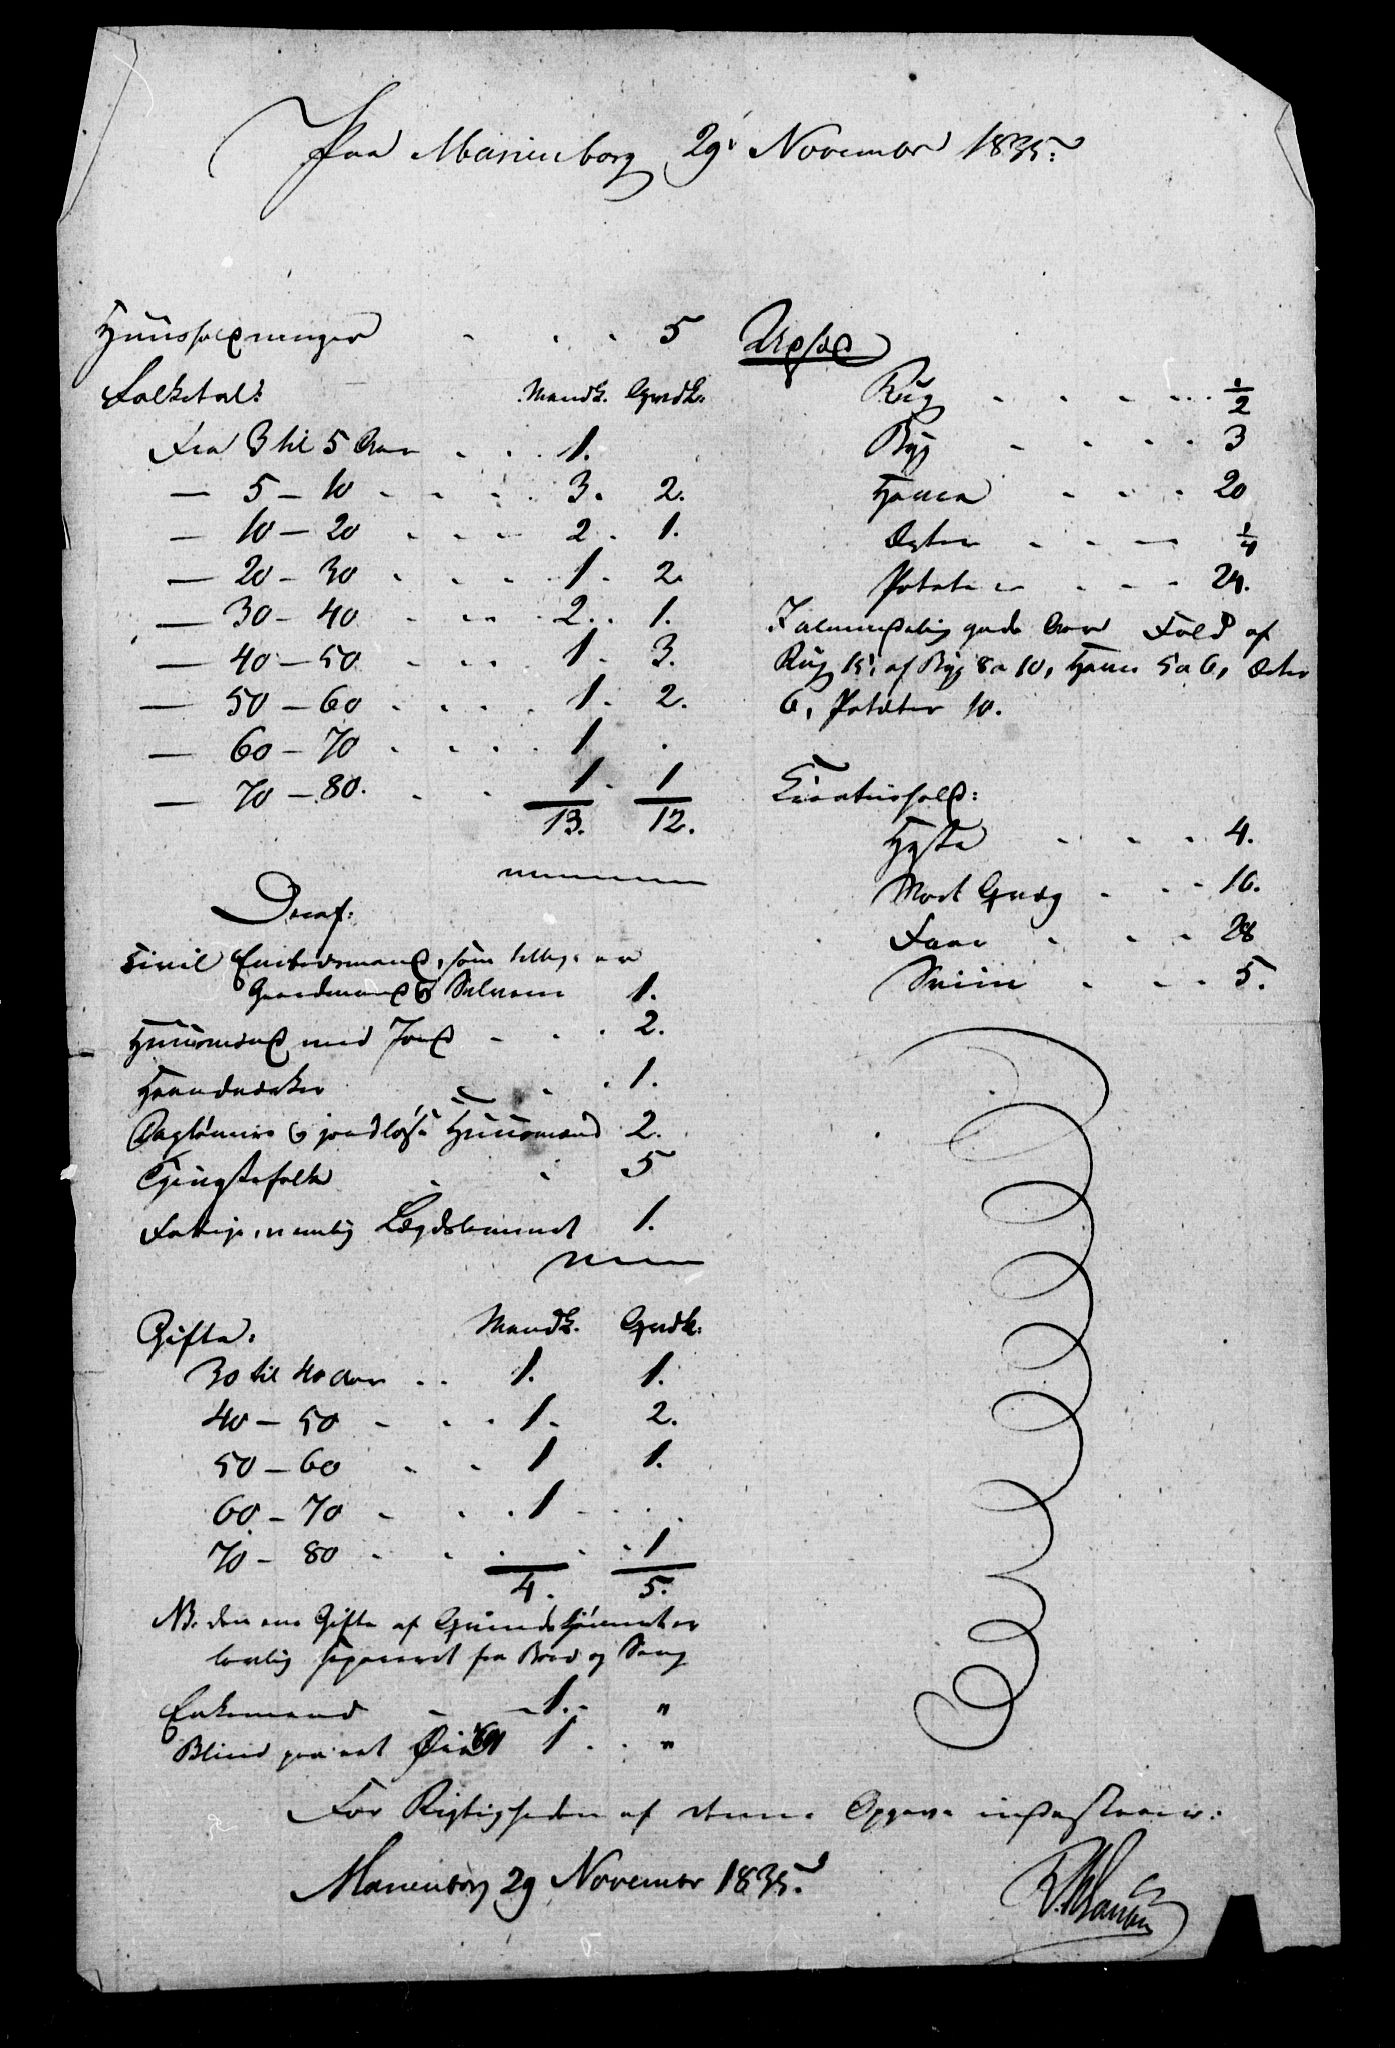 Paa Marienborg 29 November 1835.
Huusholdninger . . . 5
Folketal: Mandk. Qvdk.
Fra 3 til 5 Aar . . 1.
— 5 — 10 . . . . 3. 2.
— 10 — 20 . . . . 2. 1.
— 20 — 30 . . . . 1. 2.
— 30 — 40 . . . . 2. 1.
— 40 — 50 . . . . 1. 3.
— 50 — 60 . . . . 1. 2.
— 60 — 70 . . . . 1 .
— 70 — 80. . . 1. 1
13. 12.
Deraf:
Civil Embedsmand, som tillige er
Gaardmand og Selveier 1.
Huusmænd med Jord . . . 2.
Haandværker . . . 1.
Daglönnere og jordløse Huusmænd 2.
Tjenestefolk . . 5
Fattige, nemlig Lægdslemmet 1.
Gifte: Mandk. Qvdk.
30 til 40 Aar . . 1. 1.
40 — 50 . . . 1. 2.
50 — 60 . . 1 1.
60 — 70 . . . 1 . .
70 — 80 . . . . . 1
4. 5.
NB. den ene Gifte af Qvindekjönnet er
lovlig separeret fra Bord og Seng
Enkemænd . . 1. "
Blind paa eet Øie 1 . . "
Udsæd
Rug . . . . . . 1/2
Byg . . . . 3
Havre . . . 20
Erter . . . — 1/4
Potetes . . . 24.
I almindelig gode Aar Fold af
Rug 15, af Byg 8 a 10, Havre 5 a 6, Erter
6, Poteter 10.
Creaturhold:
Heste . . . 4.
Stort Qvæg . . . 16.
Faar . . . 28
Sviin . . . 5.
For Rigtigheden af denne Opgave indestaaer:
Marienborg 29 November 1835.